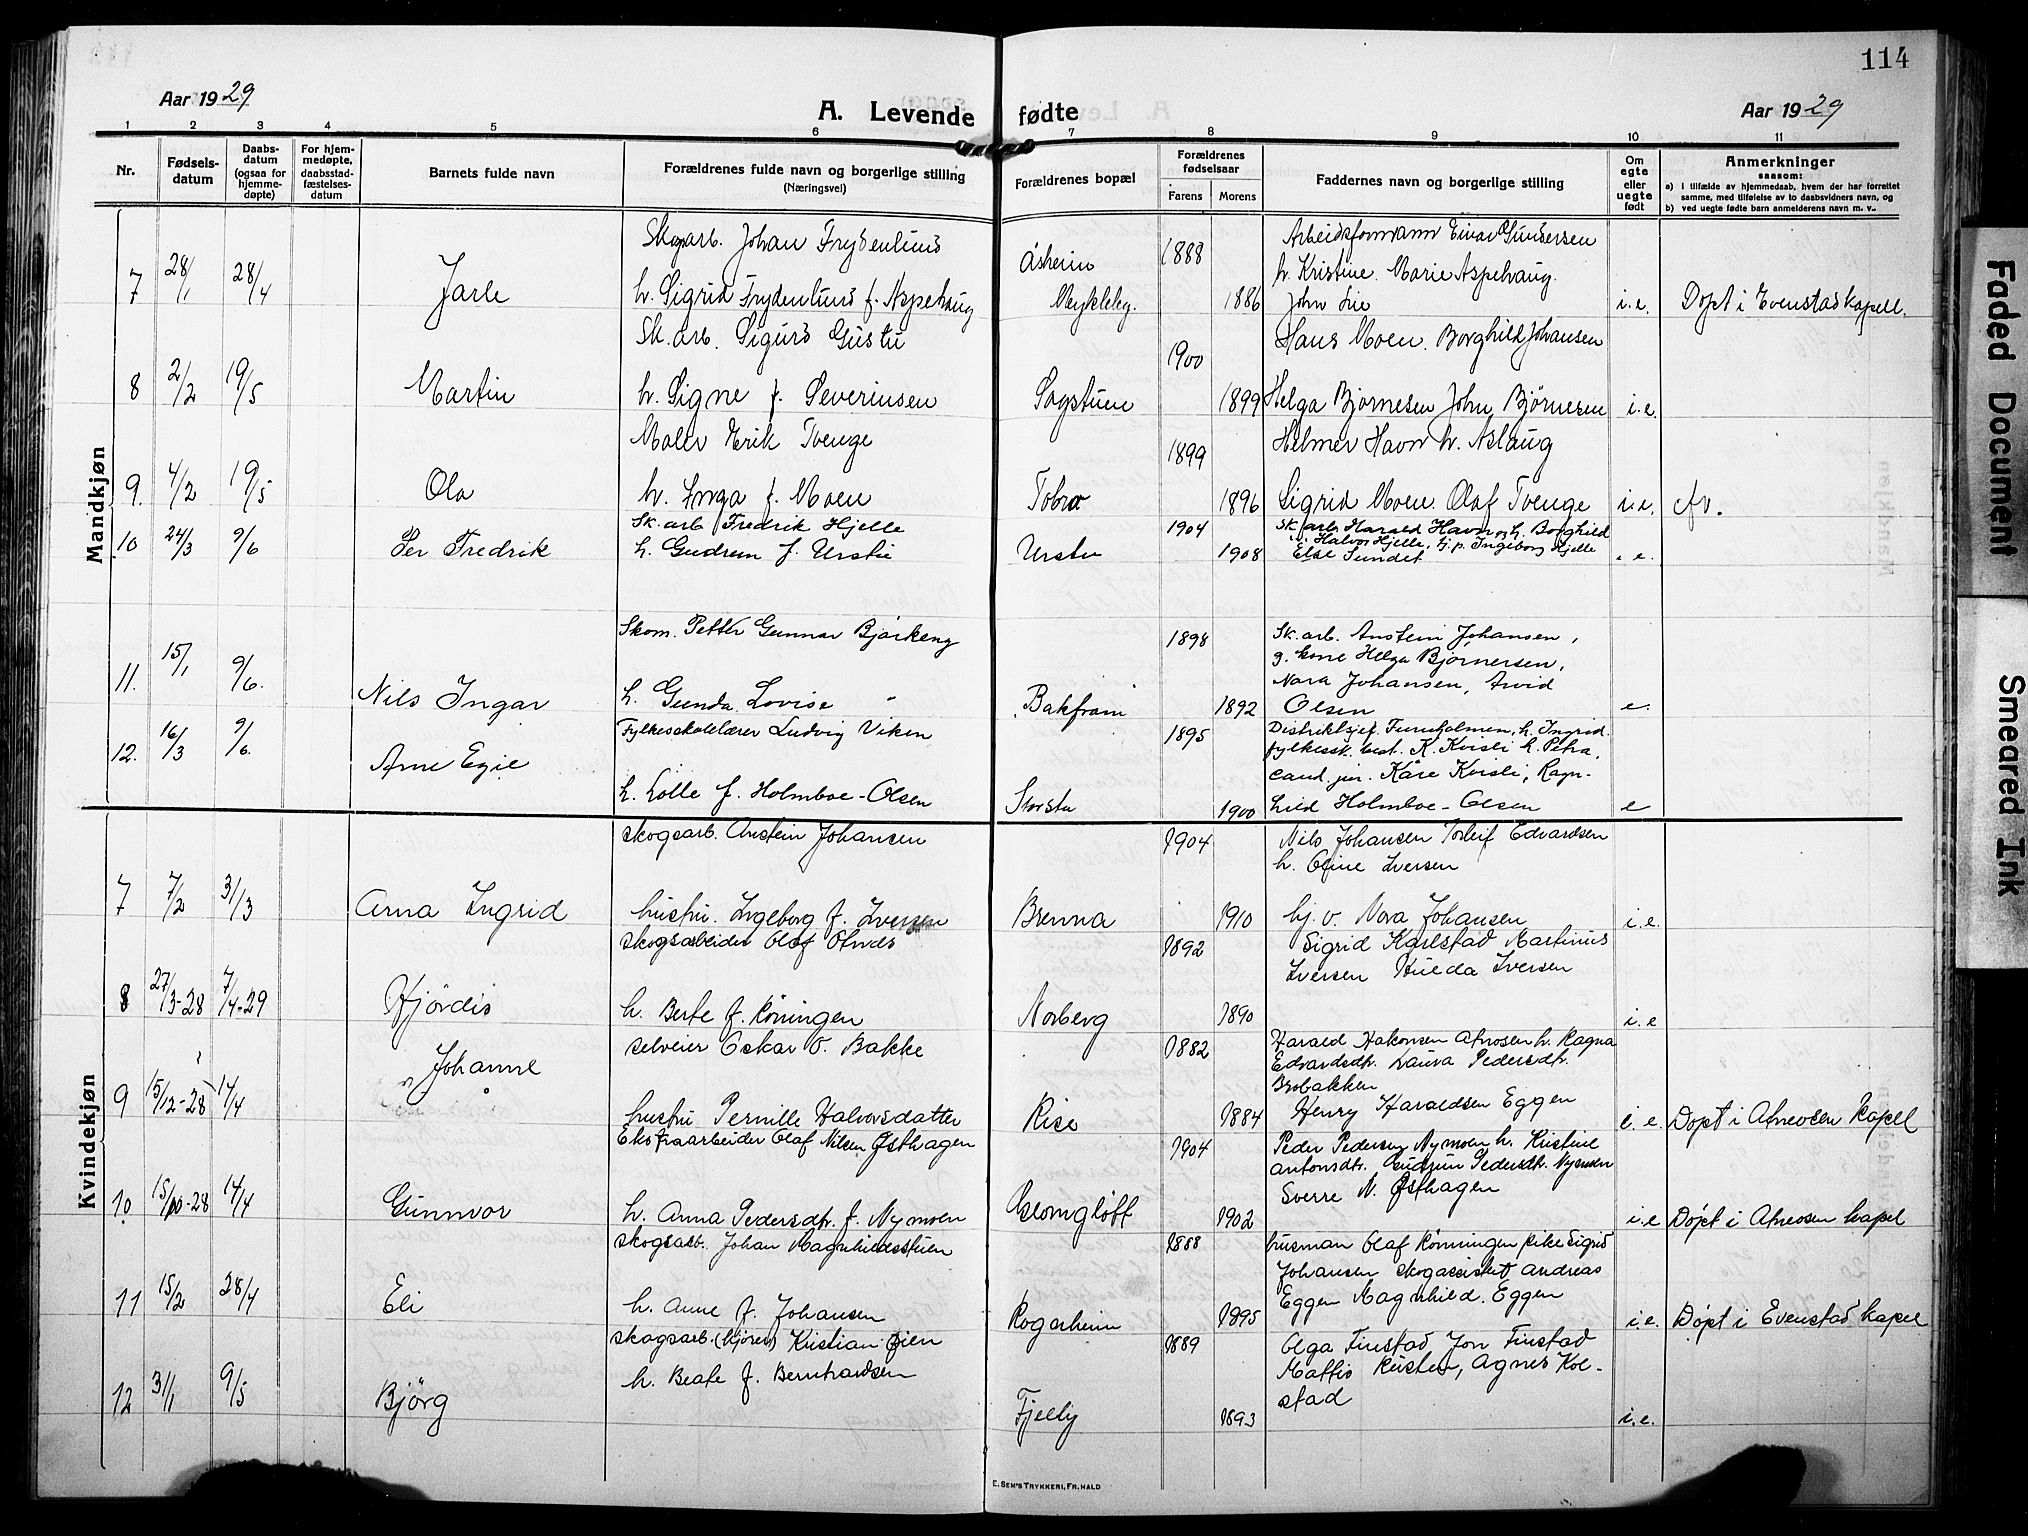 114
Aar 1929
A. Levende fødte
Aar 1929
1 2 3 4 5 6 7 8 9 10 11
Nr.
Fødsels-
datum
Daabs-
datum
(ogsaa for
hjemme-
døpte)
For hjem-
medøpte,
daabsstad-
fæstelses-
datum
Barnets fulde navn
Forældrenes fulde navn og borgerlige stilling
(Næringsvei)
Forældrenes bopæl
Forældrenes
fødselsaar
Farens Morens
Faddernes navn og borgerlige stilling
Om
egte
eller
uegte
født
Anmerkninger
saasom:
a) i tilfælde av hjemmedaab, hvem der har forrettet
samme, med tilføielse av to daabsvidners navn, og
b) ved uegte fødte barn anmelderens navn m. v..
Mandkjøn
Skogarb. Johan Frydenlund 1888 Arbeidsformann Einar Gundersen
Åsheim h. Kristine. Marie Aspehaug.
7 28/1 28/4 Jarle h. Sigrid Frydenlund f. Aspehaug Mykleby. 1886 John Lie i.e. Døpt i Evenstad kapell.
Sk.arb. Sigurd Gustu 1900 Hans Moen. Borghild Johansen
8 2/2 19/5 Martin h. Signe f. Severinsen Sagstuen 1899 Helga Bjørnesen John Bjørnesen i.e.
Maler Erik Tvenge 1899 Helmer Havn h. Aslaug
9. 4/2 19/5 Ola h. Inga f. Moen Tobro 1896 Sigrid Moen. Olaf Tvenge i.e.
Sk. arb Fredrik Hjelle 1904 Sk. arb. Harald Havn og h. Borghild
Halvor Hjelle, Ingeborg Hjelle
10 24/3 9/6 Per Fredrik h. Gudrun f. Urstu Urstu 1908 Else Sundet e.
Skom. Petter Gunnar Bjørkeng 1898 Sk. arb. Anstein Johansen,
g. kone Helga Bjørnersen,
Nora Johansen, Arvid
11. 15/1 9/6. Nils Ingar h. Gunda Lovise " Bakfram 1892 Olsen e.
Fylkesskolelærer Ludvig Viken 1895 Distriktsjef Furuholmen, h. Ingrid.
fylkessk. best. K. Kvisli h. Petra,
12. 16/3 9/6. Arne Egil cand. jur. Kåre Kvisli, Ragn-
h. Lolle f. Holmboe-Olsen Storstu 1900 hild Holmboe-Olsen e
Kvindekjøn
skogsarb. Anstein Johansen 1904 Nils Johansen Torleif Edvardsen
h. Oline Iversen
7 7/2 31/3 Anna Ingrid hustru. Ingeborg f. Iversen Brenna 1910 hj. v. Nora Johansen i.e.
skogsarbeider Olaf 1892 Sigrid Karlstad Martinus
Iversen Hulda Iversen
8 27/3-28 7/4-29 Hjørdis h. Berte f. Rönningen Norberg 1890 i.e
selveier Oskar O. Bakke 1882 Harald Hakonsen Atnosen h. Ragna
Johanne Edvardsdtr. Laura Pedersdtr.
Brobakken
9 15/12-28 14/4 hustru Pernille Halvorsdatter Rise 1884 Henry Haraldsen Eggen i. e. Døpt i Atneosen Kapel
Ekstraarbeider Olaf Nilsen Østhagen 1904 Peder Pedersen Nymoen h. Kristine
Antonsdtr. Gudrun Pedersdtr. Nymoen
10 15/10-28 14/4 Gunnvor h. Anna Pedersdtr. f. Nymoen 1902 Sverre N. Østhagen i.e Døpt i Atneosen kapel
skogsarb. Johan Magnhildsstuen 1888 husman Olaf Rönningen pike Sigrid
Johansen skogassistent Andreas
11 15/2 28/4 Eli h. Anne f. Johansen Rognheim 1895 Eggen Magnhild. Eggen i.e. Døpt i Evenstad kapel
skogsarb. (kjörer) Kristian Øien 1889 Olga Finstad Jon Finstad
h. Beate f. Bernhardsen Mattis Agnes Kol-
12 31/1 9/5 Björg Fjelly 1893 stad i.e.
E. SEM'S TRYKKERI, FR. HALD
Faded Document
Smeared Ink